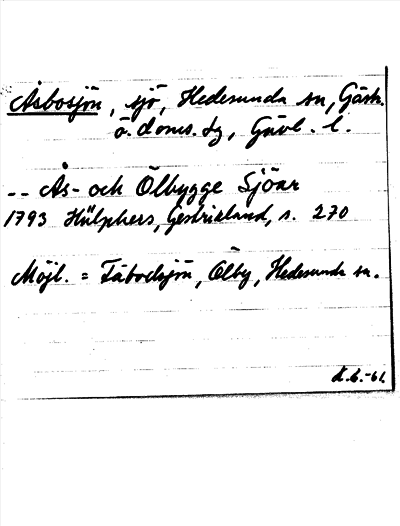 Åsbosjön, sjö, Hedesunda sn, Gästr.
ö. doms. tg, Gävl. l.
-- Ås- och Ölbygge Sjöar
1793 Hülphers, Gestrikland, s. 270
Möjl. = Täbodsjön, Ölby, Hedesunda sn.
61.